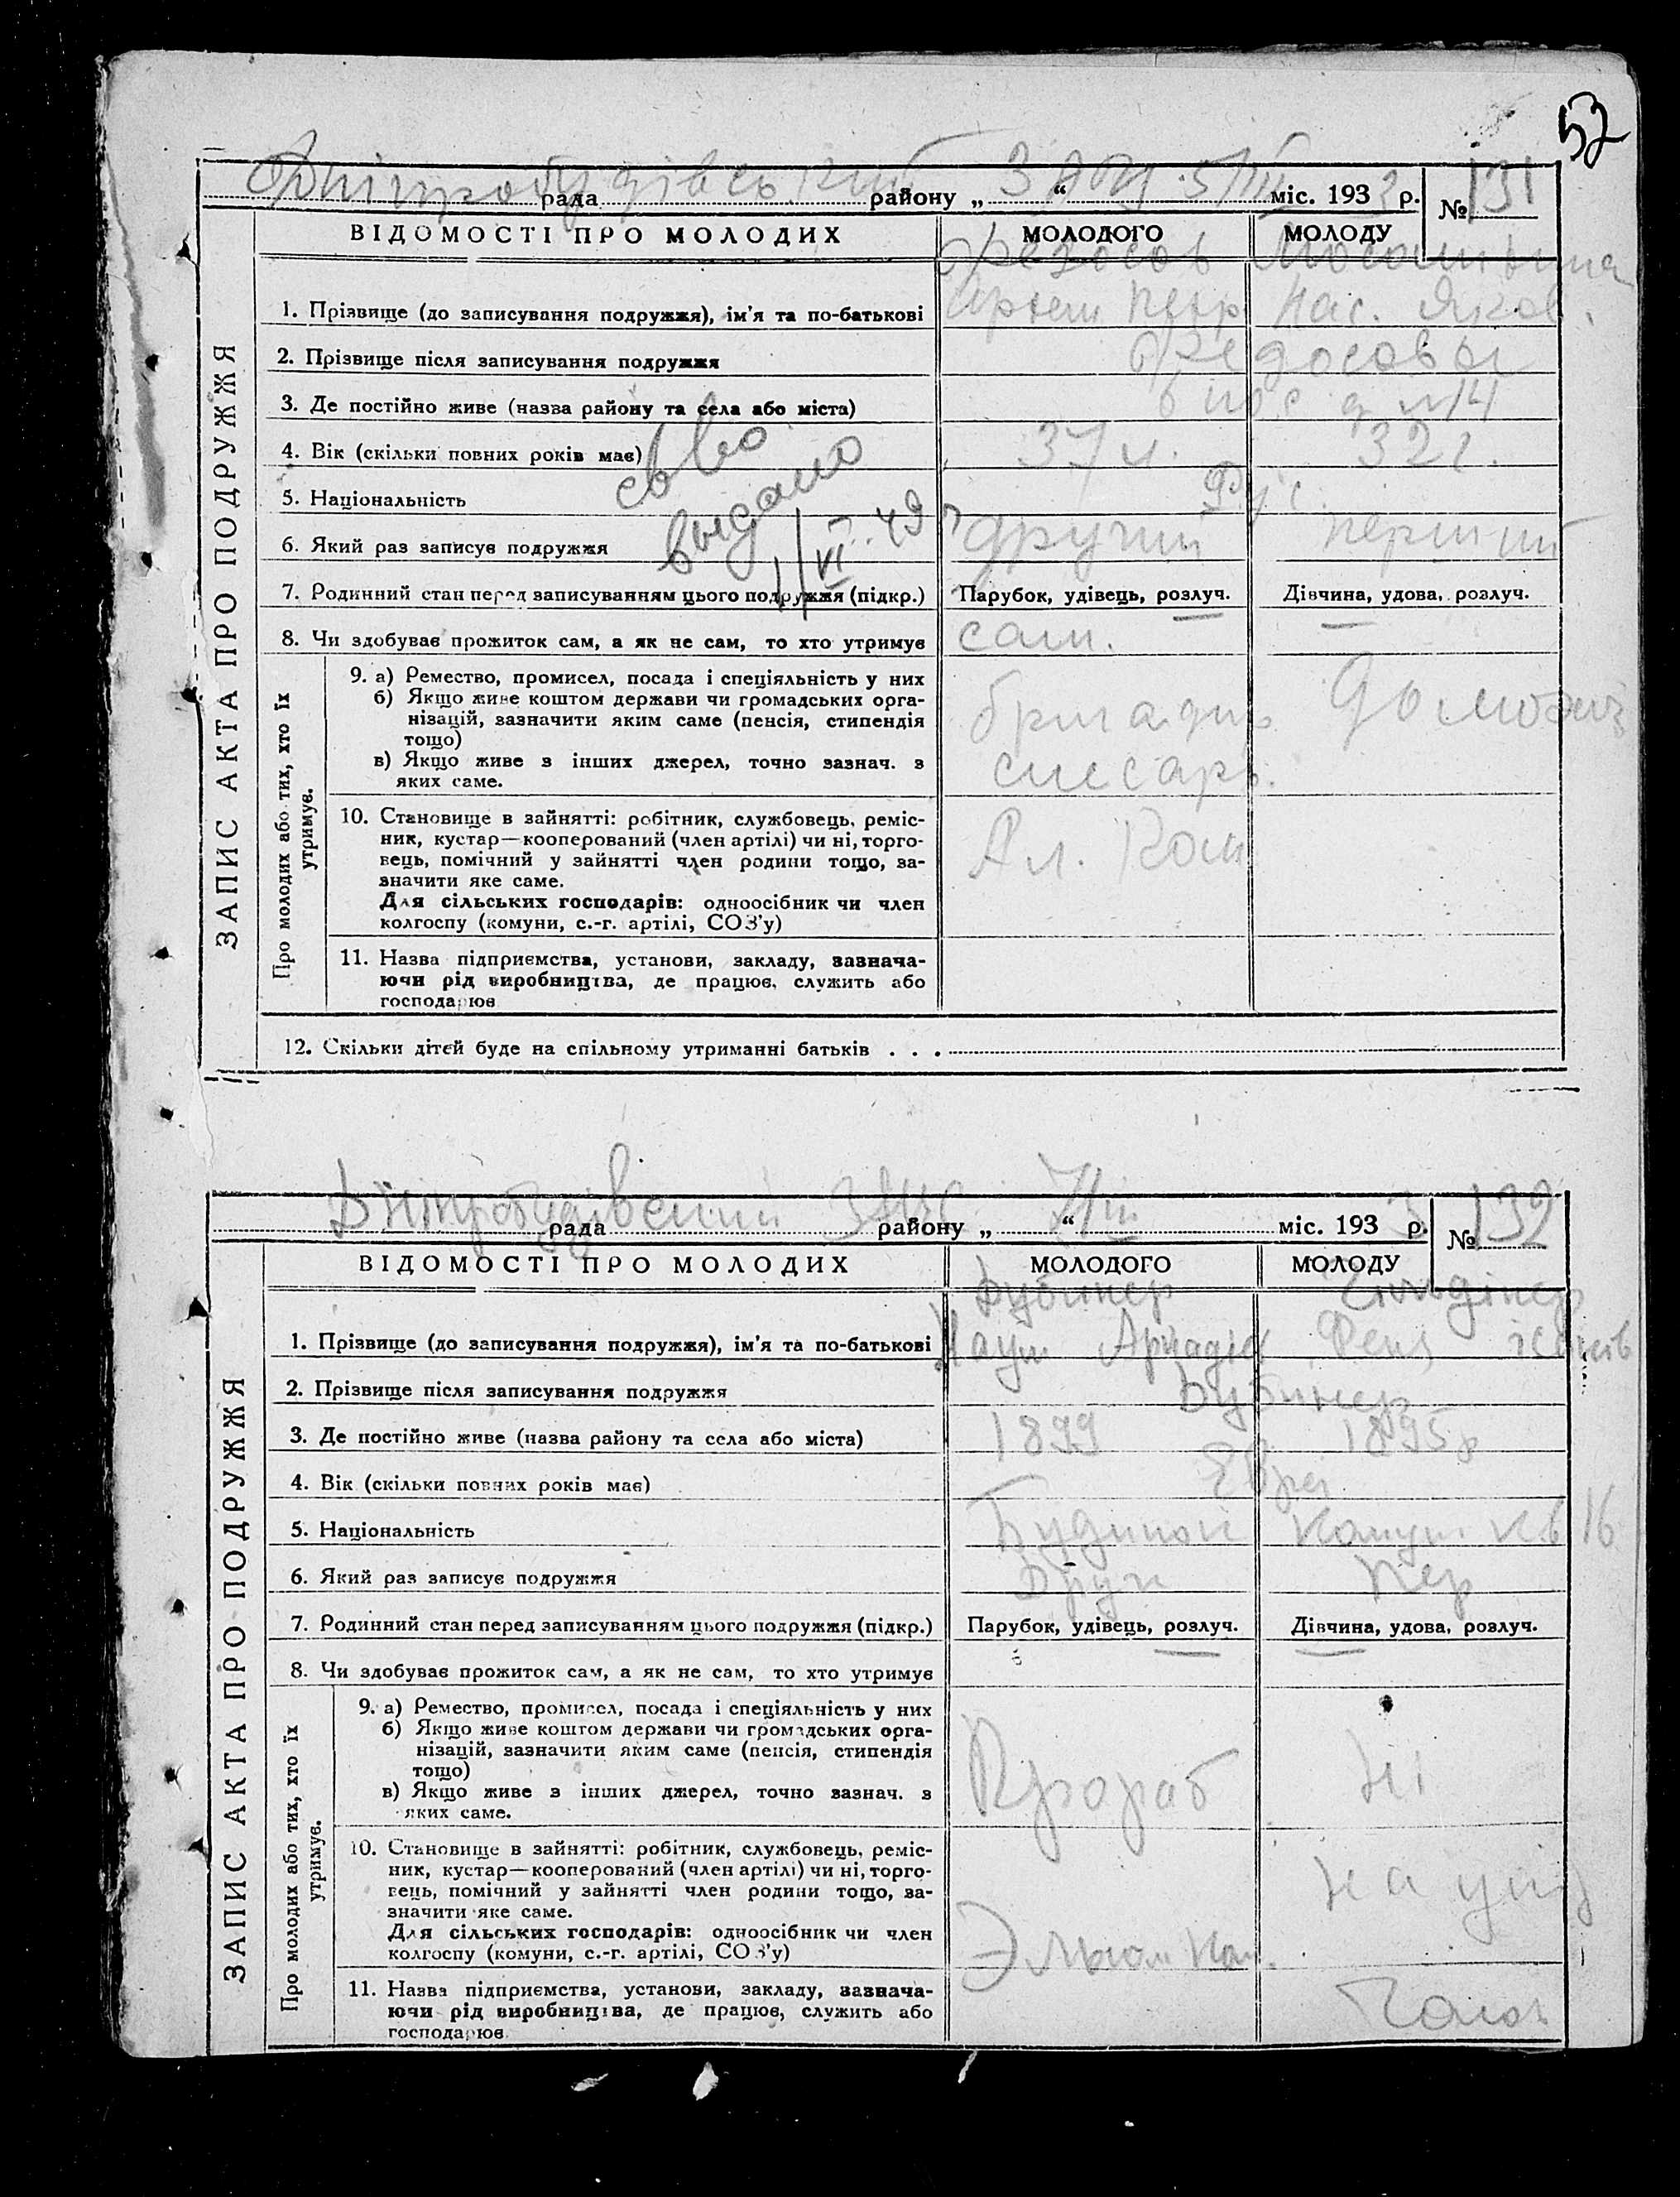 52
Дніпробудівський ЗАГС 5/III
рада району „ “ міс. 193 3 р. № 131
ВІДОМОСТІ ПРО МОЛОДИХ МОЛОДОГО МОЛОДУ
1. Прізвище (до записування подружжя), ім'я та по-батькові Артем Петр Нас. Яков.
2. Прізвище після записування подружжя Федосовы
3. Де постійно живе (назва району та села або міста) 6 пос д №14
4. Вік (скільки повних років має) 37 л. 32 г.
5. Національність Рус.
6. Який раз записує подружжя другий перший
св-во
выдано
1/VI.49
7. Родинний стан перед записуванням цього подружжя (підкр.) Парубок, удівець, розлуч. Дівчина, удова, розлуч.
8. Чи здобуває прожиток сам, а як не сам, то хто утримує сам.
9. а) Ремество, промисел, посада і спеціяльність у них
б) Якщо живе коштом держави чи громадських орга-
нізацій, зазначити яким саме (пенсія, стипендія
тощо)
в) Якщо живе з інших джерел, точно зазнач. з
яких саме.
бригадир
слесарь.
домохоз
10. Становище в зайнятті: робітник, службовець, реміс-
ник, кустар—кооперований (член артілі) чи ні, торго-
вець, помічний у зайнятті член родини тощо, за-
значити яке саме.
Для сільських господарів: одноосібник чи член
колгоспу (комуни, с.-г. артілі, СОЗ'у)
Ал. Ком
11. Назва підприємства, установи, закладу, зазнача-
ючи рід виробництва, де працює, служить або
господарює
12. Скільки дітей буде на спільному утриманні батьків . . .
ЗАПИС АКТА ПРО ПОДРУЖЖЯ
Про молодих або тих, хто їх
утримує.
Дніпробудівський ЗАГС 7/III
рада району „ “ міс. 193 3 р. № 132
ВІДОМОСТІ ПРО МОЛОДИХ МОЛОДОГО МОЛОДУ
Дубинер
1. Прізвище (до записування подружжя), ім'я та по-батькові Наум Аркадів Феня
2. Прізвище після записування подружжя Дубинер
3. Де постійно живе (назва району та села або міста) 1899 1895 р
4. Вік (скільки повних років має) Евреї
5. Національність Будинок Комун кв 16
6. Який раз записує подружжя Друг Пер
7. Родинний стан перед записуванням цього подружжя (підкр.) Парубок, удівець, розлуч. Дівчина, удова, розлуч.
8. Чи здобуває прожиток сам, а як не сам, то хто утримує
9. а) Ремество, промисел, посада і спеціяльність у них
б) Якщо живе коштом держави чи громадських орга-
нізацій, зазначити яким саме (пенсія, стипендія
тощо)
в) Якщо живе з інших джерел, точно зазнач. з
яких саме.
Прораб Ні
10. Становище в зайнятті: робітник, службовець, реміс-
ник, кустар—кооперований (член артілі) чи ні, торго-
вець, помічний у зайнятті член родини тощо, за-
значити яке саме.
Для сільських господарів: одноосібник чи член
колгоспу (комуни, с.-г. артілі, СОЗ'у)
на утр
11. Назва підприємства, установи, закладу, зазнача-
ючи рід виробництва, де працює, служить або
господарює
ЗАПИС АКТА ПРО ПОДРУЖЖЯ
Про молодих або тих, хто їх
утримує.